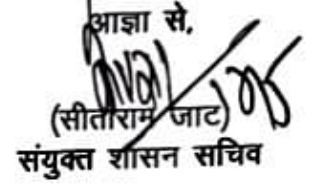 आज्ञा से,
(सीताराम जाट)
संयुक्त शासन सचिव